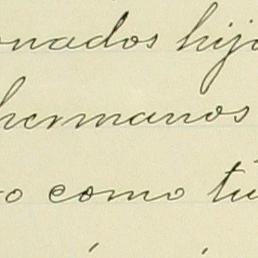 onados hijo
hermanos
o como tú